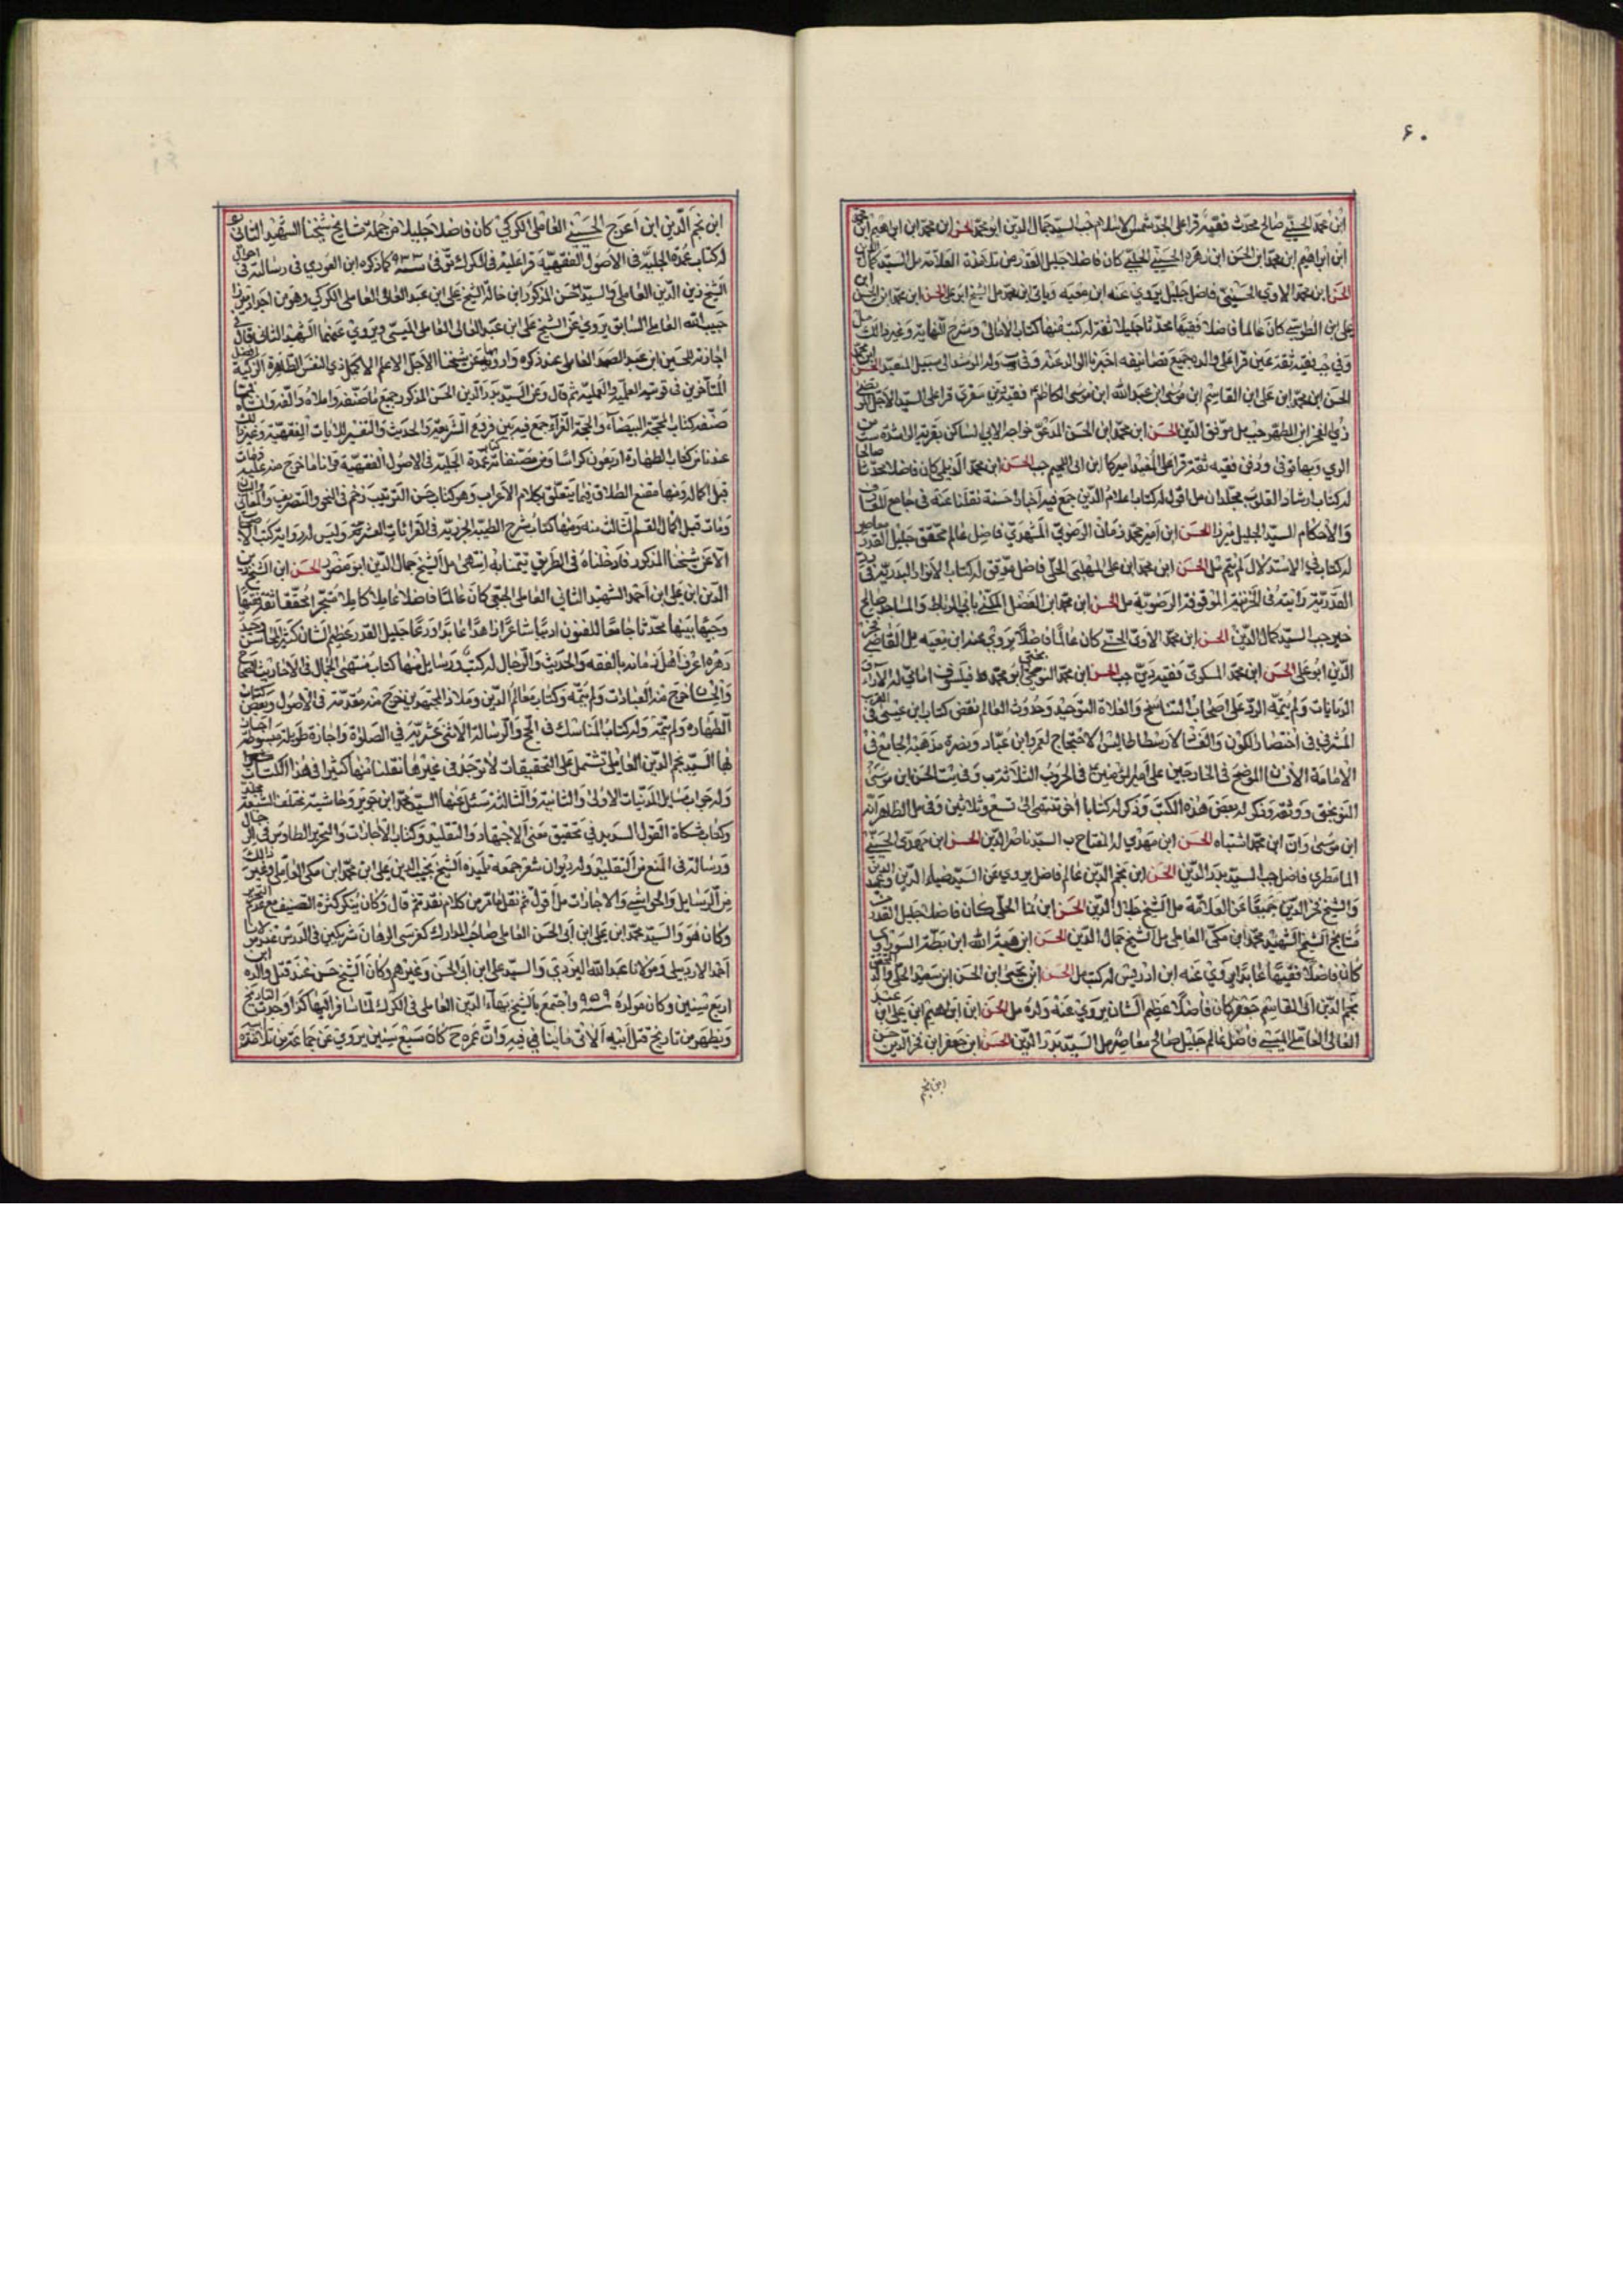 ۶۰
ابن محمد الحسيني صالح محدث فقيه قرا على الجد شمس الاسلام جب السيد جمال الدين ابو محمد الحسن ابن محمد ابن ابراهيم ابن
ابن ابراهيم ابن محمد ابن الحسن ابن زهره الحسيني الحلبي كان فاضلا جليل القدر من تلامذة العلامة مل السيد كمال الدين
الحسن ابن محمد الاوي الحسيني فاضل جليل يروي عنه ابن معيه وياتي ابن محمد مل الشيخ ابو علي الحسن ابن محمد ابن الحسن
علي ابن الطوسي كان عالما فاضلا فقيها محدثا جليلا ثقة له كتب منها كتاب الامالي وشرح النهاية وغير ذلك
وفي جب فقيه ثقة عين قرا على والده جميع تصانيفه اخبرنا الوالد عنه وفي ب وله المرشد الى سبيل المتعبد الحسن
الحسن ابن محمد ابن علي ابن القاسم ابن موسى ابن عبدالله ابن موسى الكاظم فقيه قرا على السيد الاجل المرتضى
ذي الفخر ابن المطهر جب مل موفق الدين الحسن ابن محمد ابن الحسن المدعو خواجه الابي الساكن بقرية
الري وبها توفي ودفن فقيه ثقة قرا على المفيد اميركا ابن ابي اللجيم جب الحسن ابن محمد الديلمي كان فاضلا محدثا صالحا
له كتاب ارشاد القلوب مجلدان مل اقول له كتاب اعلام الدين جمع فيه اخبارا حسنة نقلنا عنه في جامع المعارف
والاحكام السيد الجليل ميرزا الحسن ابن امير محمد زمان الرضوي المشهدي فاضل عالم محقق جليل القدر معاصر
له كتاب في الاستدلال لم يتم مل الحسن ابن محمد ابن علي المهلبي الحلي فاضل موفق له كتاب الانوار البدرية في رد
القدرية رايته في الخزينة الموقوفة الرضوية مل الحسن ابن محمد ابن الفضل المسكني باني الرباط والمساجد صالح
خير جب السيد كمال الدين الحسن ابن محمد الاوي الحسني كان عالما فاضلا يروي عنه ابن معيه مل القاضي فخر
الدين ابو علي الحسن ابن محمد السكوي فقيه دين جب الحسن ابن محمد النوبختي ابو محمد ط فيلسوف امامي له الاراء
الديانات ولم يتمه الرد على اصحاب التناسخ والغلاة التوحيد وحدوث العالم نقض كتاب ابن عيسى في
المشرقي في اختصار الكون والفساد لارسطاطاليس الاحتجاج لعمرو ابن عباد ونصرة مذهبه الجامع في
الامامة الموضح في الخارجين على امير المؤمنين في الحروب الثلاثة ب وفي ست الحسن ابن موسى
النوبختي ووثقه وذكر له بعض هذه الكتب وذكر له كتابا اخر تنتهي الى تسع وثلاثين وفي مل الظاهر انه
ابن موسى وان ابن محمد اشتباه الحسن ابن مهدي له المفتاح ب السيد ناصر الدين الحسن ابن مهدي الحسني
المامطري فاضل جب السيد بدر الدين الحسن ابن نجم الدين عالم فاضل يروي عن السيد ضياء الدين وعميد الدين
والشيخ فخر الدين جميعا عن العلامة مل الشيخ جلال الدين الحسن ابن نما الحلي كان فاضلا جليل القدر من
مشايخ الشيخ الشهيد محمد ابن مكي العاملي مل الشيخ جمال الدين الحسن ابن هبة الله ابن رطبة السوراوي
كان فاضلا فقيها عابدا يروي عنه ابن ادريس له كتب مل الحسن ابن يحيى ابن الحسن ابن سعيد الحلي والد
نجم الدين ابي القاسم جعفر كان فاضلا عظيم الشان يروي عنه ولده مل الحسن ابن ابراهيم ابن علي ابن عبد
العالي العاملي الميسي فاضل عالم جليل صالح معاصر مل السيد بدر الدين الحسن ابن جعفر ابن فخر الدين حسن
ابن نجم
ابن نجم الدين ابن اعرج الحسيني العاملي الكركي كان فاضلا جليلا من جملة مشايخ شيخنا الشهيد الثاني
له كتاب عمدة الجلية في الاصول الفقهية قرا عليه في الكرك توفي في سنة ۹۳۳ كما ذكره ابن العودي في رسالته في احوال
الشيخ زين الدين العاملي والسيد حسن المذكور ابن خالة الشيخ علي ابن عبد العالي العاملي الكركي وهو من اجداد ميرزا
حبيب الله العاملي السابق يروي عن الشيخ علي ابن عبد العالي العاملي الميسي ويروي عنهما الشهيد الثاني قال في
اجازته للحسين ابن عبد الصمد العاملي عند ذكره وارويها عن شيخنا الاجل الاعلم الاكمل ذي النفس الطاهرة الزكية افضل
المتاخرين في قوتيه العلمية والعملية ثم قال وعن السيد بدر الدين الحسن المذكور جميع ما صنفه واملاه والفه وانشاه
صنفه كتاب المحجة البيضاء والحجة الغراء جمع فيه بين فروع الشريعة والحديث والتفسير للايات الفقهية وغيرها
عندنا من كتاب الطهارة اربعون كراسا ومن مصنفاته كتاب العمدة الجلية في الاصول الفقهية قرانا ما خرج منه عليه ومات
قبل اكماله ومنها مقنع الطلاب فيما يتعلق بكلام الاعراب وهو كتاب حسن الترتيب ضخم في النحو والتصريف والمعاني والبيان
ومات قبل اكمال القسم الثالث منه ومنها كتاب شرح الطيبة الجزرية في القراءات العشر وليس له رواية كتب الاصحاب
الا عن شيخنا المذكور فادخلناه في الطريق تيمنا به انتهى مل الشيخ جمال الدين ابو منصور الحسن ابن الشيخ زين
الدين ابن علي ابن احمد الشهيد الثاني العاملي الجبعي كان عالما فاضلا عاملا كاملا متبحرا محققا ثقة فقيها
وجيها نبيها محدثا جامعا للفنون اديبا شاعرا زاهدا عابدا ورعا جليل القدر عظيم الشان كثير المحاسن وحيد
دهره اعرف اهل زمانه بالفقه والحديث والرجال له كتب ورسايل منها كتاب منتهى الجمال في الاحاديث الصحاح
والحسان خرج منه العبادات ولم يتمه وكتاب معالم الدين وملاذ المجتهدين خرج منه مقدمته في الاصول وبعض كتاب
الطهاره ولم يتمه وله كتاب المناسك في الحج والرسالة الاثنى عشرية في الصلوة واجازة طويلة مبسوطة اجاز
بها السيد نجم الدين العاملي تشتمل على التحقيقات لا توجد في غيرها نقلنا منها كثيرا في هذا الكتاب
وله جواب مسايل المدنيات الاولى والثانية والثالثة سئل عنها السيد محمد ابن جوير وحاشية مختلف الشيعة مجلد
وكتاب مشكاة القول السديد في تحقيق معنى الاجتهاد والتقليد وكتاب الاجازات والتحرير الطاوسي في الرجال
ورسالة في المنع من التقليد وله ديوان شعر جمعه تلميذه الشيخ نجيب الدين علي ابن محمد ابن مكي العاملي وغير ذلك
من الرسايل والحواشي والاجازات مل اقول ثم نقل ما مر من كلام نقد ثم قال وكان ينكر كثرة التصنيف مع تحرير
وكان هو والسيد محمد ابن علي ابن ابي الحسن العاملي صاحب المدارك كفرسي الرهان شريكين في الدرس عند مولانا
احمد الاردبيلي ومولانا عبدالله اليزدي والسيد علي ابن ابي الحسن وغيرهم وكان الشيخ حسن عند قتل والده ابن
اربع سنين وكان مولده سنة ۹۵۹ واجتمع بالشيخ بهاء الدين العاملي في الكرك لما سافر اليها كذا وجدت التاريخ
ويظهر من تاريخ قتل ابيه الاتي ما ينافيه وان عمره ح كان سبع سنين يروي عن جماعة من تلامذة